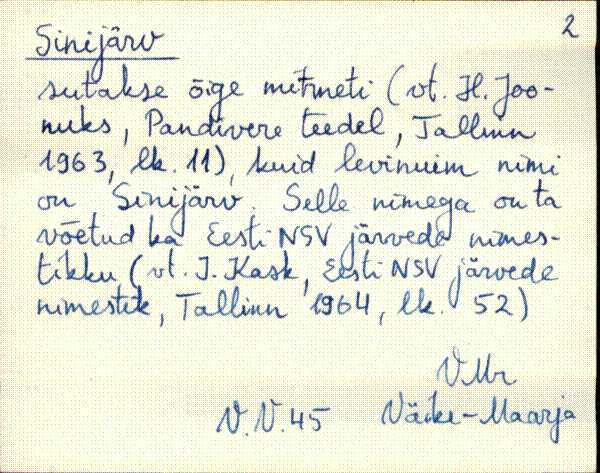 2
Sinijärv
sutakse õige mitmeti (vt. H. Joo-
nuks, Pandivere teedel, Tallinn
1963, lk. 11), kuid levinuim nimi
on Sinijärv. Selle nimega on ta
võetud ka Eesti NSV järvede nimes-
tikku (vt. J. Kask, Eesti NSV järvede
nimestik, Tallinn 1964, lk. 52)
V.Mr
V.V.45 Väike-Maarja